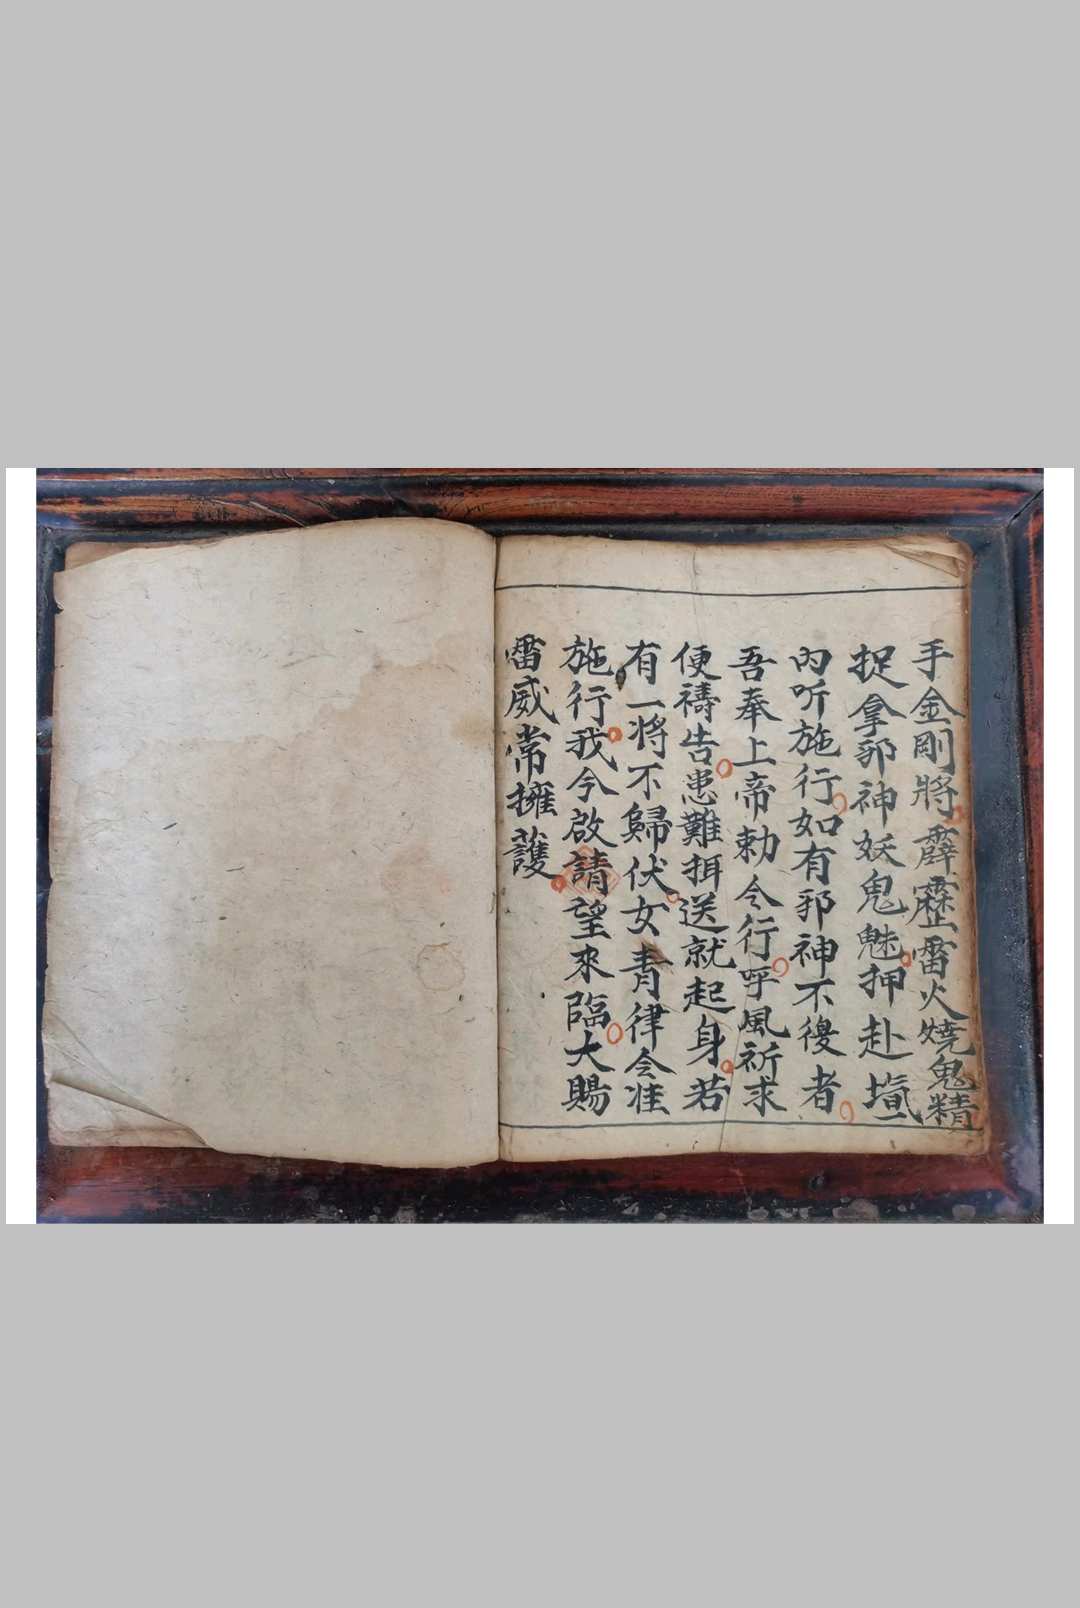 手金剛將霹靂雷火燒鬼精
捉拿邪神妖鬼魅押赴壇
內听施行如有邪神不復者
吾奉上帝勅令行呼風祈求
便禱告患難掛送就起身若
有一将不歸伏女青律令准
施行我今啟請望來臨大賜
雷威常擁護